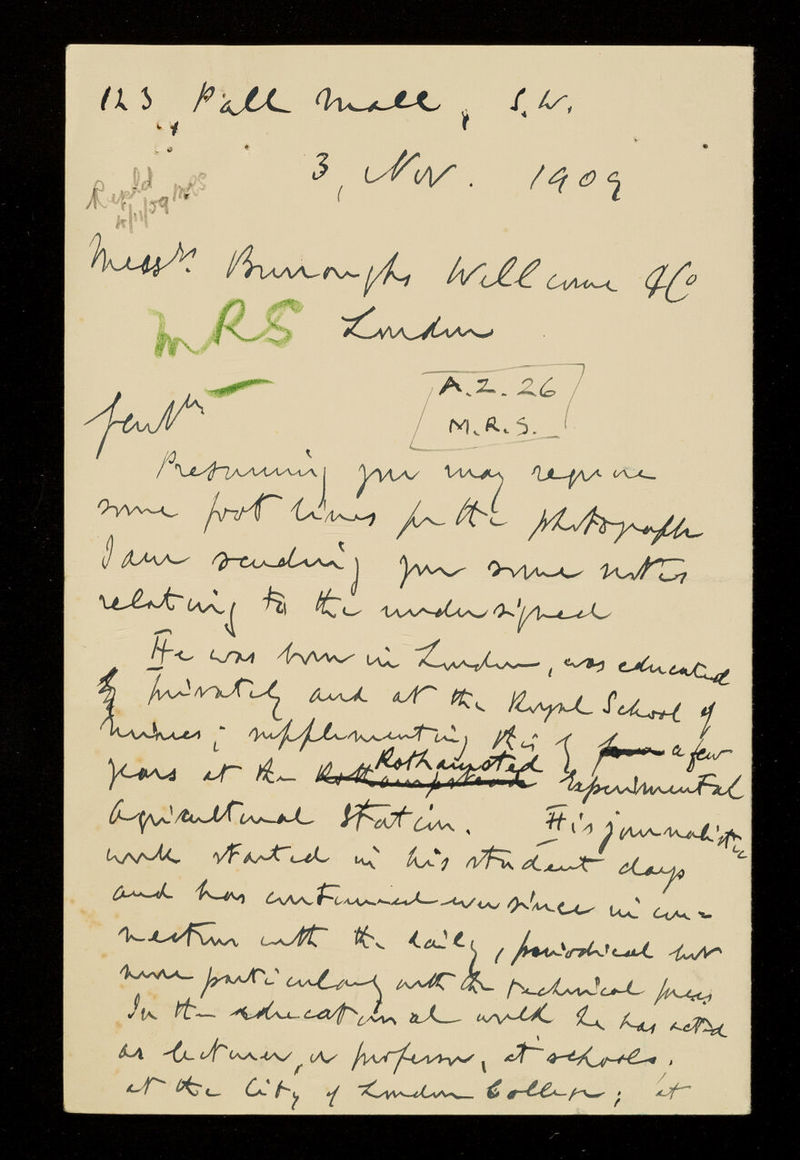 123, Pall Mall, S.W.
3, Nov. 1909
Repld
4/11/09 MRS
Messrs. Burroughs Wellcome & Co
MRS London
A.Z.26
M.R.S.
Gentn
Presuming you may require
some foot lines for the photograph
I am sending you some notes
relating to the undersigned
He was born in London, was educated
privately and at the Royal School of
Mines; supplementing this by a few
years at the Rothamsted Experimental
Agricultural Station. His journalistic
work started in his student days
and has continued ever since in con=
nection with the daily, periodical but
more particularly with the technical press
In the educational world he has acted
as lecturer, or professor, at schools;
at the City of London College; at